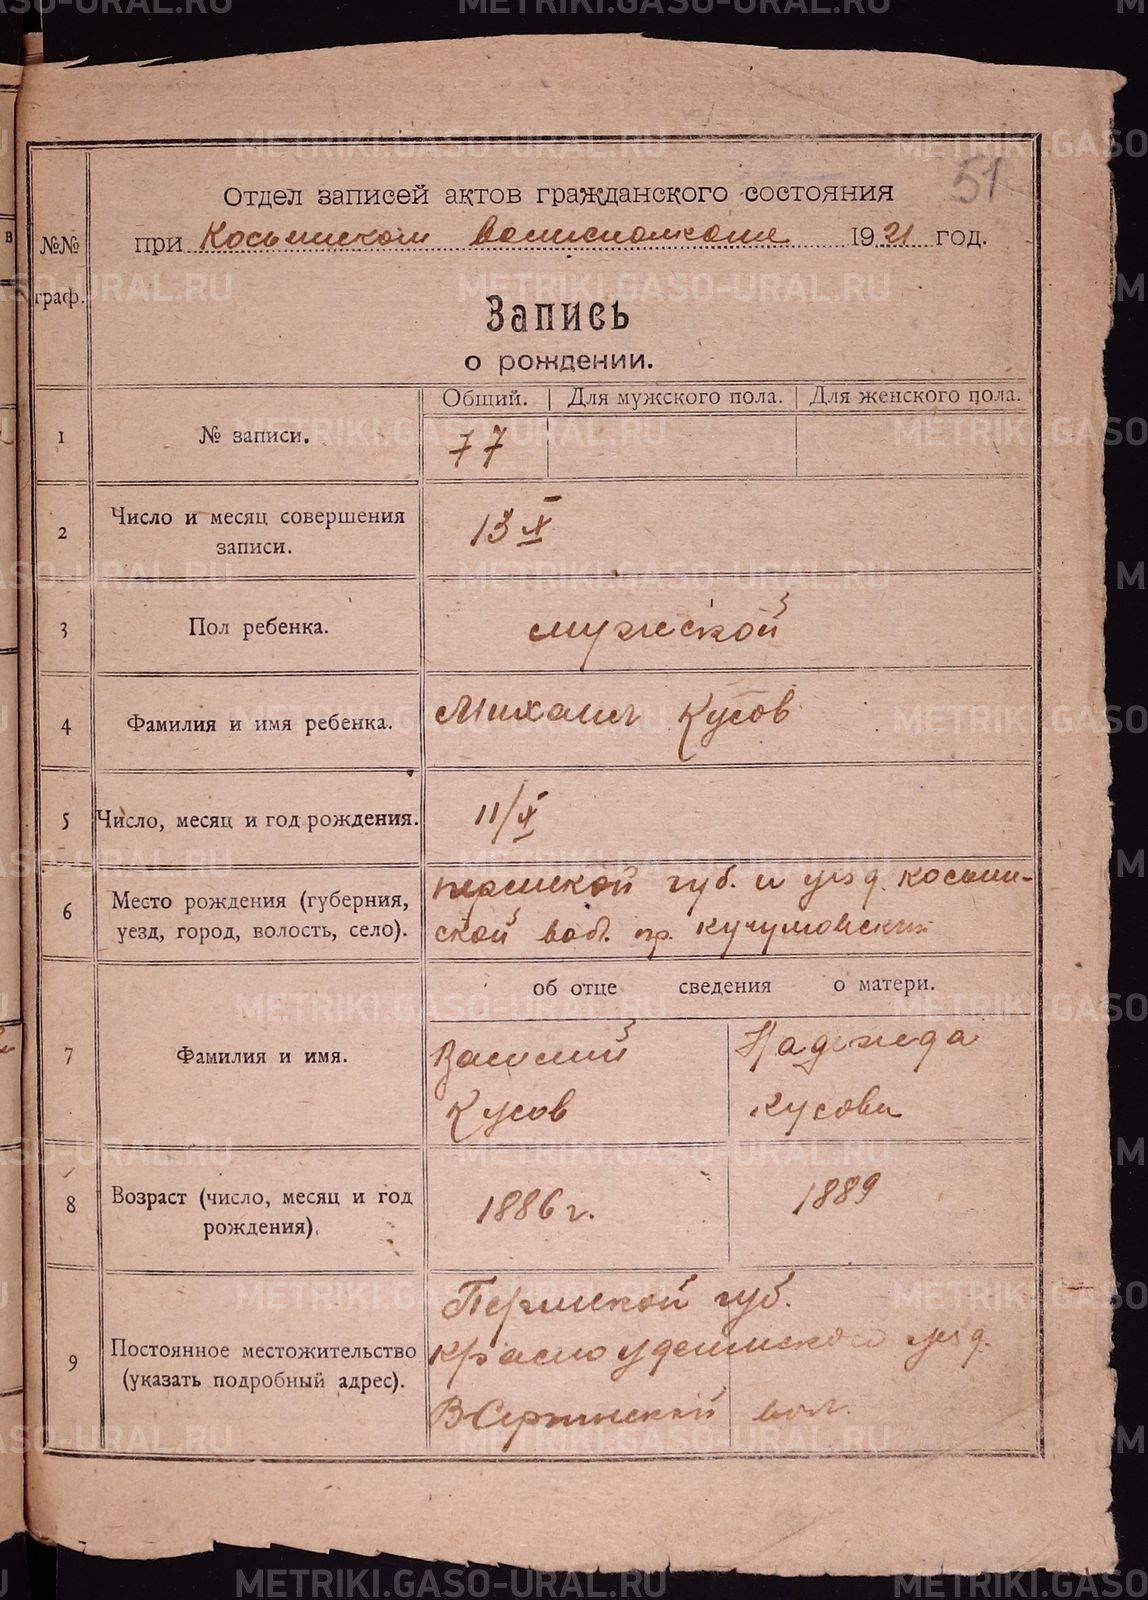 51
Отдел записей актов гражданского состояния
при Косьинском волисполкоме 1921 год.
№№
граф.
Запись
о рождении.
Общий. Для мужского пола. Для женского пола.
1 № записи. 77
2 Число и месяц совершения
записи. 13 X
3 Пол ребенка. мужской
4 Фамилия и имя ребенка. Михаил Кусов
5 Число, месяц и год рождения. 11/X
6 Место рождения (губерния,
уезд, город, волость, село).
пермской губ. и уезд. косьин-
ской вол. пр. кучумовский
об отце сведения о матери.
7 Фамилия и имя.
Василий Надежда
Кусов кусова
8 Возраст (число, месяц и год
рождения).
1886 г. 1889
9 Постоянное местожительство
(указать подробный адрес).
Пермской губ.
Красноуфимского уезд.
В Сергинской вол.
METRIKI.GASO-URAL.RU